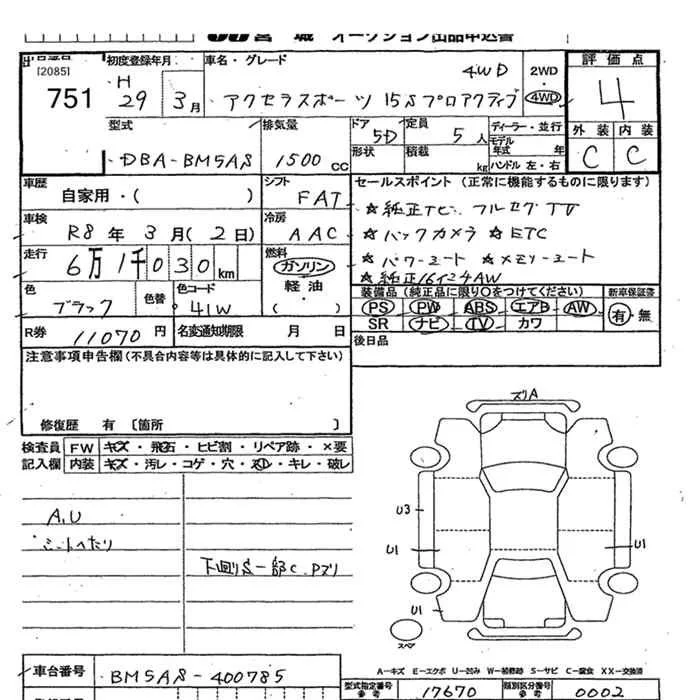 宮城 オークション出品申込書
[2085]
751
初度登録年月 車名・グレード 評価点
H 29 3月 アクセラスポーツ 15Sプロアクティブ 4WD 2WD・4WD 4
型式 排気量 ドア 定員 ディーラー・並行 外装 内装
DBA-BM5AS 1500cc 5D 5人 モデル年式 年 C C
形状 積載 kg ハンドル 左・右
車歴 シフト セールスポイント (正常に機能するものに限ります)
自家用・( ) FAT ☆純正ナビ フルセグTV
車検 冷房 ☆バックカメラ ☆ETC
R8年3月(2日) AAC ☆パワーシート ☆メモリーシート
走行 燃料 ☆純正16インチAW
6万1千030km ガソリン 軽油・( )
装備品 (純正品に限り○をつけてください) 新車保証書
色 色替 色コード PS PW ABS エアB AW 有・無
ブラック 41W SR ナビ TV カワ
R券 11070円 名変通知期限 月 日 後日品
注意事項申告欄 (不具合内容等は具体的に記入して下さい)
修復歴 有 〔箇所 〕
検査員 FW キズ・飛石・ヒビ割・リペア跡・×要
記入欄 内装 キズ・汚レ・コゲ・穴・スレ・キレ・破レ
ズリA
A,U
シートへたり
下回りS一部C、Pズリ
U3
U1
U1
U1
スペア
A−キズ E−エクボ U−凹み W−補修跡 S−サビ C−腐食 XX−交換済
車台番号 BM5AS-400785
型式指定番号 参考 17670 類別区分番号 参考 0002